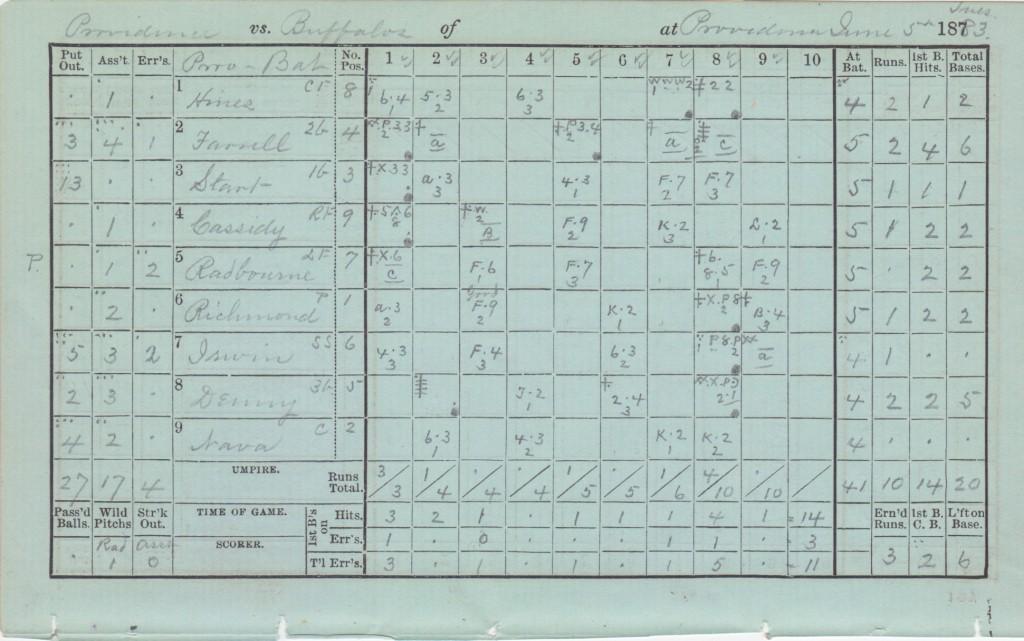 Providence vs. Buffalos of at Providence June 5th 1883. Tues.
Put Out. Ass't. Err's. Prov - Bat No. Pos. 1 2 3 4 5 6 7 8 9 10 At Bat. Runs. 1st B. Hits. Total Bases.
· 1 · 1 Hines CF 8 6·4 5·3 2 6·3 3 WWW2 1 ‡22 4 2 1 2
3 4 1 2 Farrell 2b 4 P.33 2 a P3.4 2 a c 5 2 4 6
13 · · 3 Start 1b 3 X33 a·3 3 4·3 1 F·7 2 F·7 3 5 1 1 1
· 1 · 4 Cassidy RF 9 W. 2 B F·9 2 K·2 3 L·2 1 5 1 2 2
P. · 1 2 5 Radbourne LF 7 X.6 c F·6 1 F·7 3 6. 8.5 F·9 2 5 · 2 2
· 2 · 6 Richmond P 1 a·3 2 Good F·9 2 K·2 1 X.P8 2 B·4 3 5 1 2 2
5 3 2 7 Irwin SS 6 4·3 3 F·4 3 6·3 2 P8.P 2 a 4 1 · ·
2 3 · 8 Denny 3b 5 2·4 3 2·1 4 2 2 5
4 2 · 9 Nava C 2 6·3 1 4·3 2 K·2 1 K·2 2 4 · · ·
27 17 4 UMPIRE. Runs Total. 3/3 1/4 ·/4 ·/4 1/5 ·/5 1/6 4/10 ·/10 / 41 10 14 20
Pass'd Balls. Wild Pitchs Str'k Out. TIME OF GAME. 1st B's on Hits. 3 2 1 · 1 1 1 4 1 =14 Ern'd Runs. 1st B. C. B. L'ft on Base.
SCORER. Err's. 1 · 0 · · · 1 1 · -3
· Rad 1 0 T'l Err's. 3 · 1 · 1 · 1 5 · -11 3 2 6